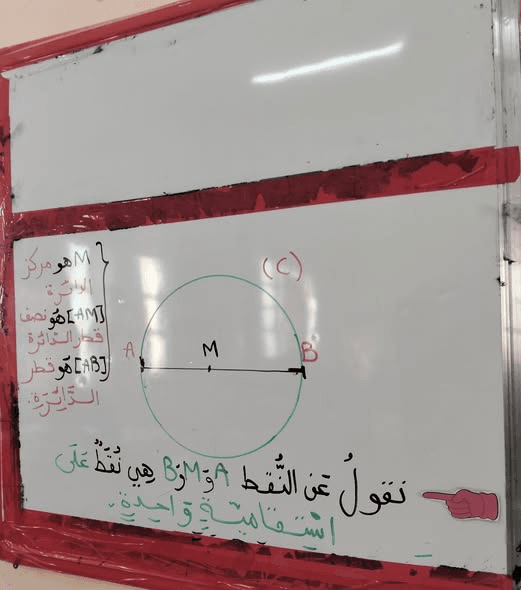 (C)
M هو مركز
الدائرة
[AM] هو نصف
قطر الدائرة
[AB] هو قطر
الدَّائِرَةِ.
A
M
B
نقولُ عَن النُّقط A وَ M وَ B هِيَ نُقَطٌ عَلَى
اسْتِقَامِيَّةٍ وَاحِدَةٍ.